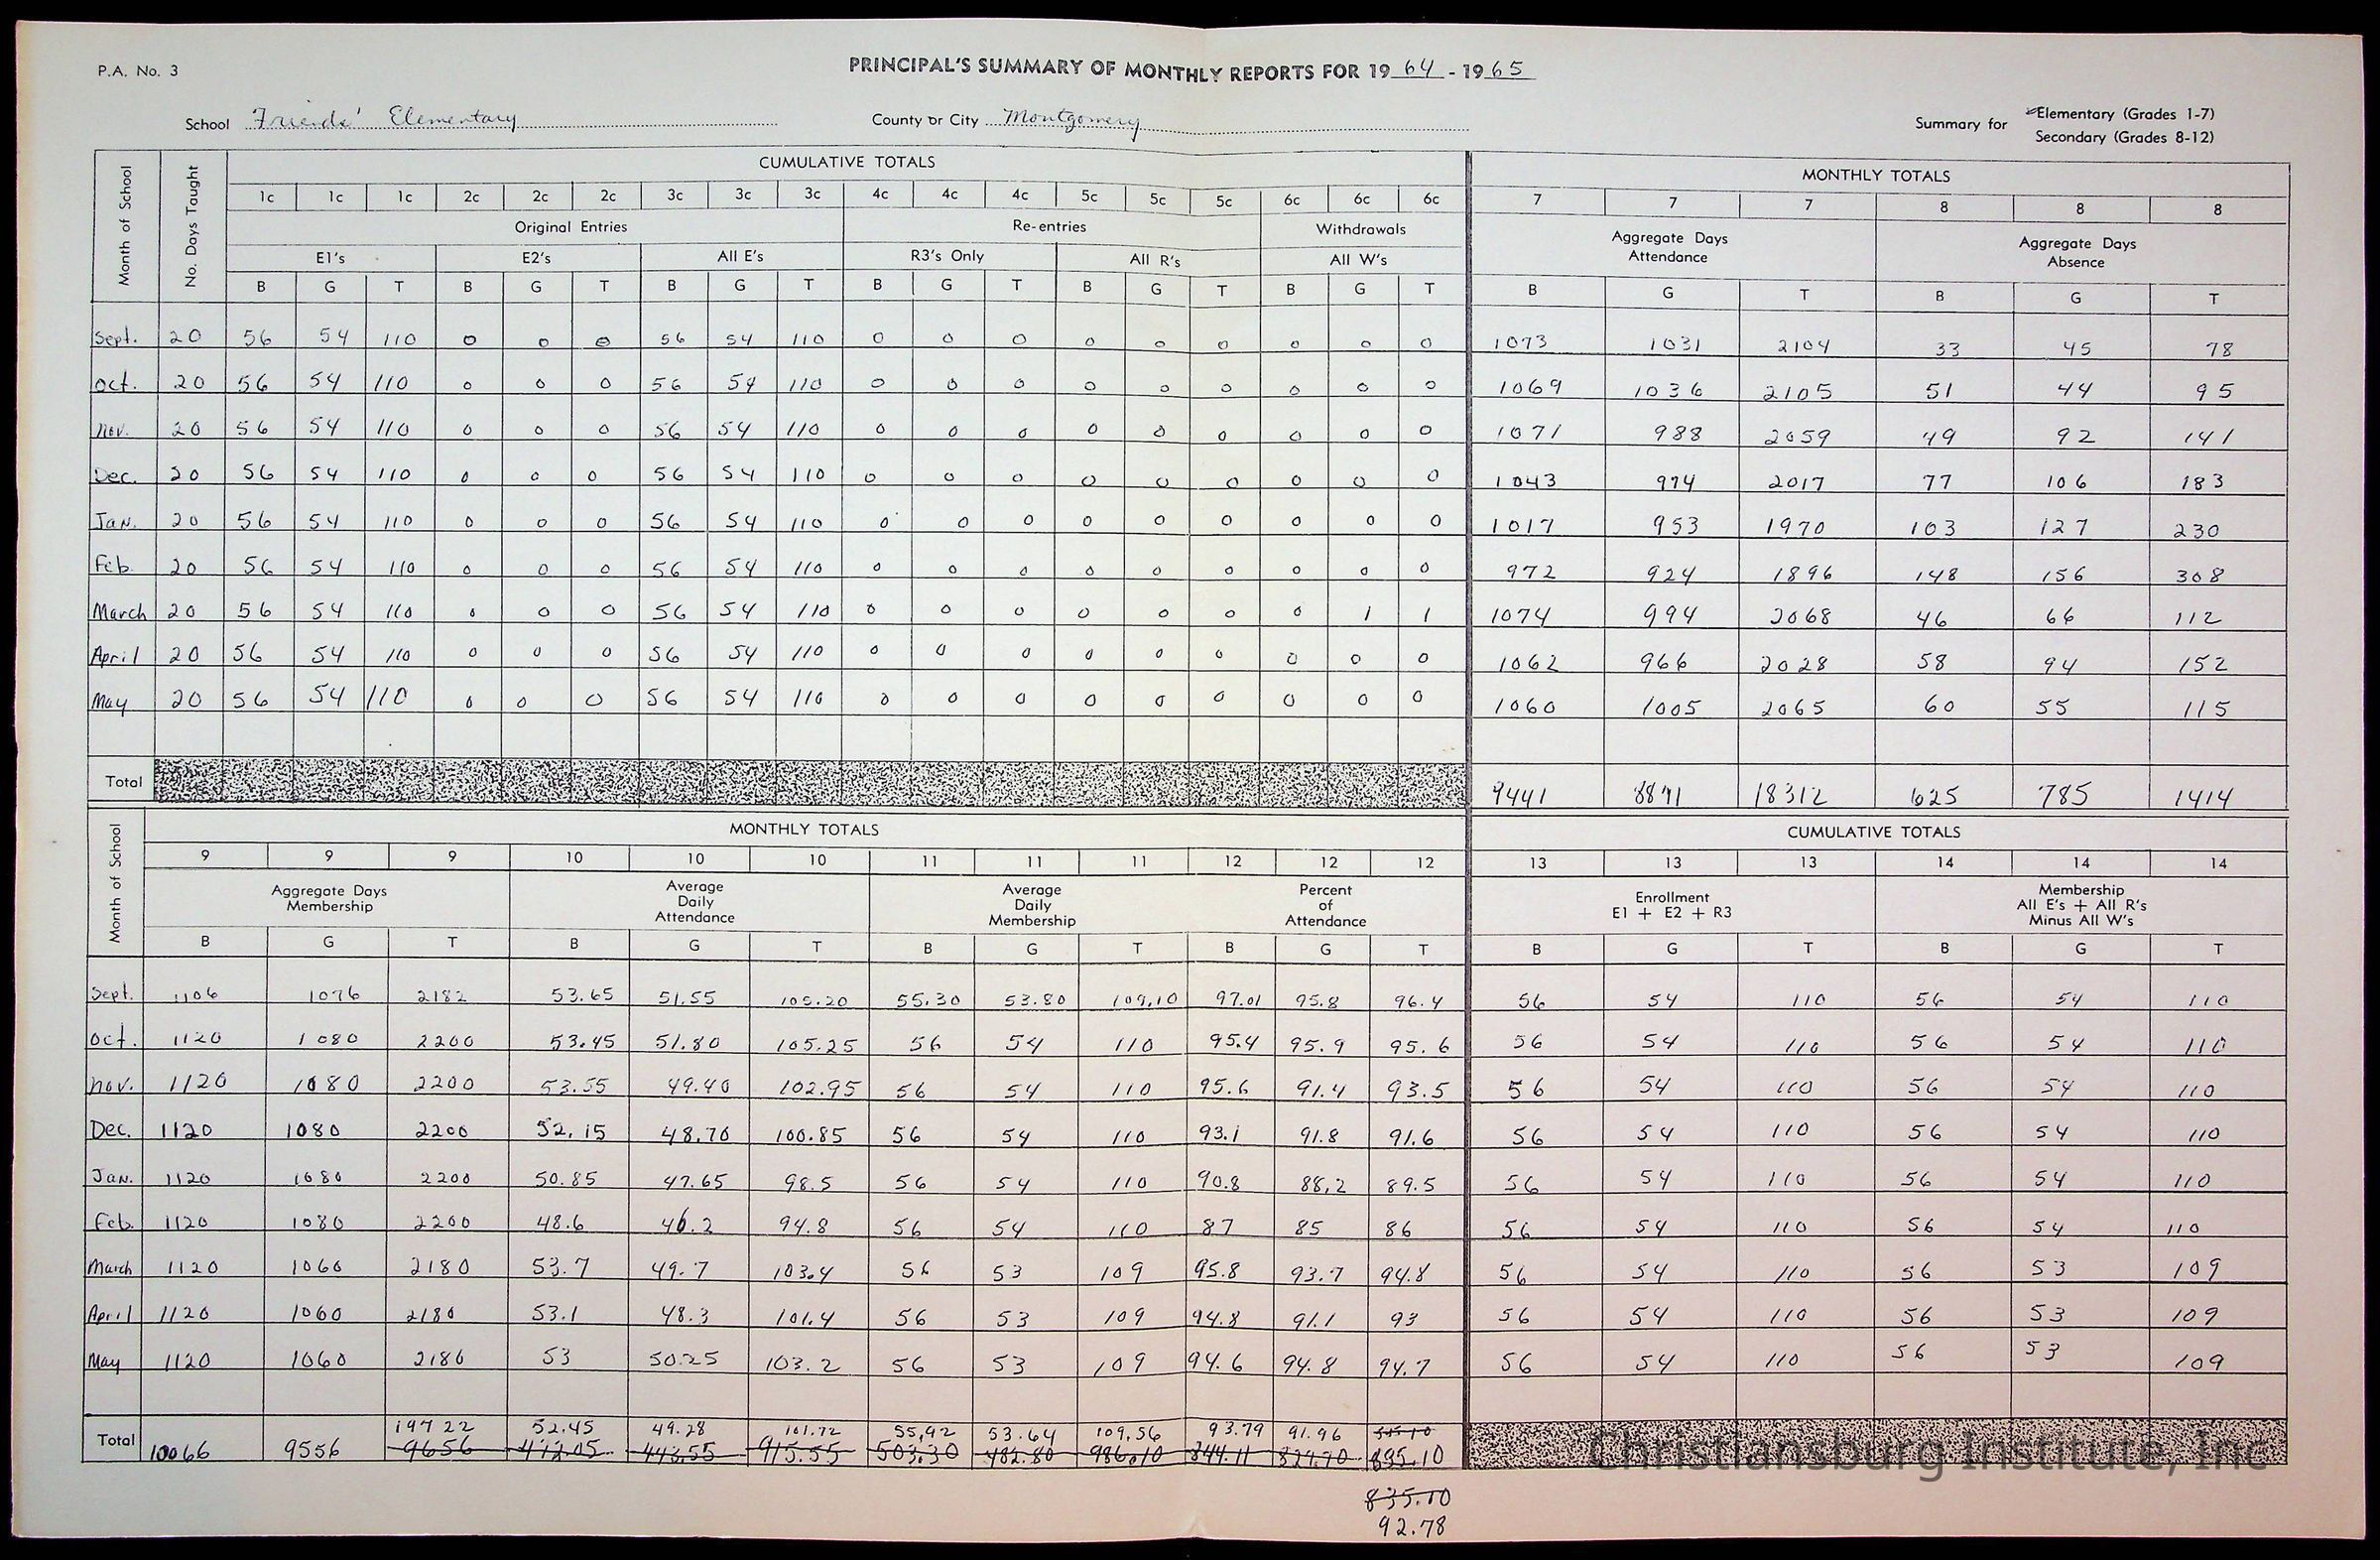 P.A. No. 3
PRINCIPAL'S SUMMARY OF MONTHLY REPORTS FOR 19 64 - 19 65
School Friends' Elementary County or City Montgomery Summary for Elementary (Grades 1-7)
Secondary (Grades 8-12)
Month of School No. Days Taught CUMULATIVE TOTALS MONTHLY TOTALS
1c 1c 1c 2c 2c 2c 3c 3c 3c 4c 4c 4c 5c 5c 5c 6c 6c 6c 7 7 7 8 8 8
Original Entries Re-entries Withdrawals Aggregate Days Attendance Aggregate Days Absence
E1's E2's All E's R3's Only All R's All W's
B G T B G T B G T B G T B G T B G T B G T B G T
Sept. 20 56 54 110 0 0 0 56 54 110 0 0 0 0 0 0 0 0 0 1073 1031 2104 33 45 78
Oct. 20 56 54 110 0 0 0 56 54 110 0 0 0 0 0 0 0 0 0 1069 1036 2105 51 44 95
Nov. 20 56 54 110 0 0 0 56 54 110 0 0 0 0 0 0 0 0 0 1071 988 2059 49 92 141
Dec. 20 56 54 110 0 0 0 56 54 110 0 0 0 0 0 0 0 0 0 1043 974 2017 77 106 183
Jan. 20 56 54 110 0 0 0 56 54 110 0 0 0 0 0 0 0 0 0 1017 953 1970 103 127 230
Feb. 20 56 54 110 0 0 0 56 54 110 0 0 0 0 0 0 0 0 0 972 924 1896 148 156 308
March 20 56 54 110 0 0 0 56 54 110 0 0 0 0 0 0 0 1 1 1074 994 2068 46 66 112
April 20 56 54 110 0 0 0 56 54 110 0 0 0 0 0 0 0 0 0 1062 966 2028 58 94 152
May 20 56 54 110 0 0 0 56 54 110 0 0 0 0 0 0 0 0 0 1060 1005 2065 60 55 115
Total 9441 8871 18312 625 785 1414
Month of School MONTHLY TOTALS CUMULATIVE TOTALS
9 9 9 10 10 10 11 11 11 12 12 12 13 13 13 14 14 14
Aggregate Days Membership Average Daily Attendance Average Daily Membership Percent of Attendance Enrollment E1 + E2 + R3 Membership All E's + All R's Minus All W's
B G T B G T B G T B G T B G T B G T
Sept. 1106 1076 2182 53.65 51.55 105.20 55.30 53.80 109.10 97.01 95.8 96.4 56 54 110 56 54 110
Oct. 1120 1080 2200 53.45 51.80 105.25 56 54 110 95.4 95.9 95.6 56 54 110 56 54 110
Nov. 1120 1080 2200 53.55 49.40 102.95 56 54 110 95.6 91.4 93.5 56 54 110 56 54 110
Dec. 1120 1080 2200 52.15 48.70 100.85 56 54 110 93.1 91.8 91.6 56 54 110 56 54 110
Jan. 1120 1080 2200 50.85 47.65 98.5 56 54 110 90.8 88.2 89.5 56 54 110 56 54 110
Feb. 1120 1080 2200 48.6 46.2 94.8 56 54 110 87 85 86 56 54 110 56 54 110
March 1120 1060 2180 53.7 49.7 103.4 56 53 109 95.8 93.7 94.8 56 54 110 56 53 109
April 1120 1060 2180 53.1 48.3 101.4 56 53 109 94.8 91.1 93 56 54 110 56 53 109
May 1120 1060 2180 53 50.25 103.2 56 53 109 94.6 94.8 94.7 56 54 110 56 53 109
19722 52.45 49.28 101.72 55.92 53.64 109.56 93.79 91.96
Total 10066 9556 9656 472.05 443.55 915.55 503.30 482.80 986.10 844.11 827.70 835.10
Christiansburg Institute, Inc
835.10
92.78